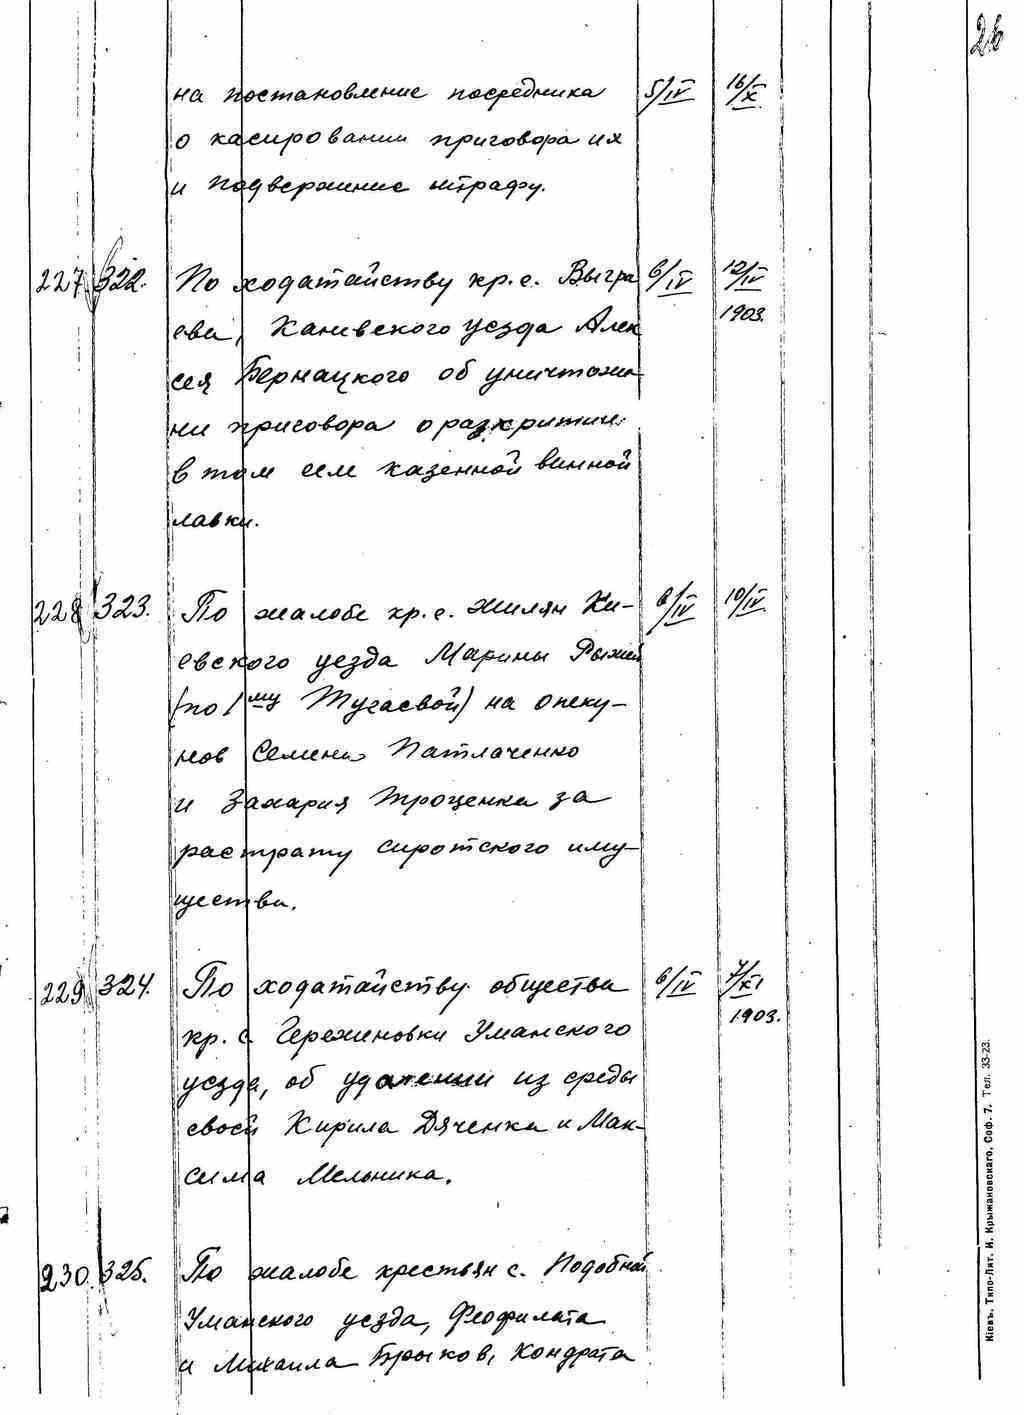 26
на постановление посредника 5/IV 16/X
о касировании приговора их
и подвержение штрафу.
227 322. По ходатайству кр. с. Выгра 6/IV 12/IV
ева, Каневского уезда Алек 1903.
сея Бернацкого об уничтоже
ни приговора о разкритии
в том селе казенной винной
лавки.
228 323. По жалобе кр. с. Жилян Ки- 6/IV 10/IV
евского уезда Марины Рыжей
(по 1му Тугаевой) на опеку-
нов Семена Патлаченко
и Захария Троценка за
растрату сиротского иму-
щества.
229 324. По ходатайству общества 6/IV 7/XI
кр. с. Гереженовки Уманского 1903.
уезда, об удалении из среды
своей Кирила Дяченка и Мак-
сима Мельника.
230. 325. По жалобе крестьян с. Подобной
Уманского уезда, Феофилата
и Михаила Брыков, Кондрата
Кіевъ, Типо-Лит. И. Крыжановскаго, Соф. 7. Тел. 33-23.